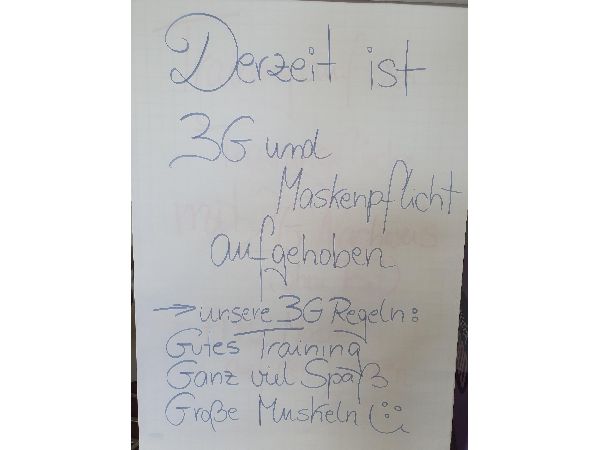 Derzeit ist
3G und
Maskenpflicht
aufgehoben
→ unsere 3G Regeln:
Gutes Training
Ganz viel Spaß
Große Muskeln